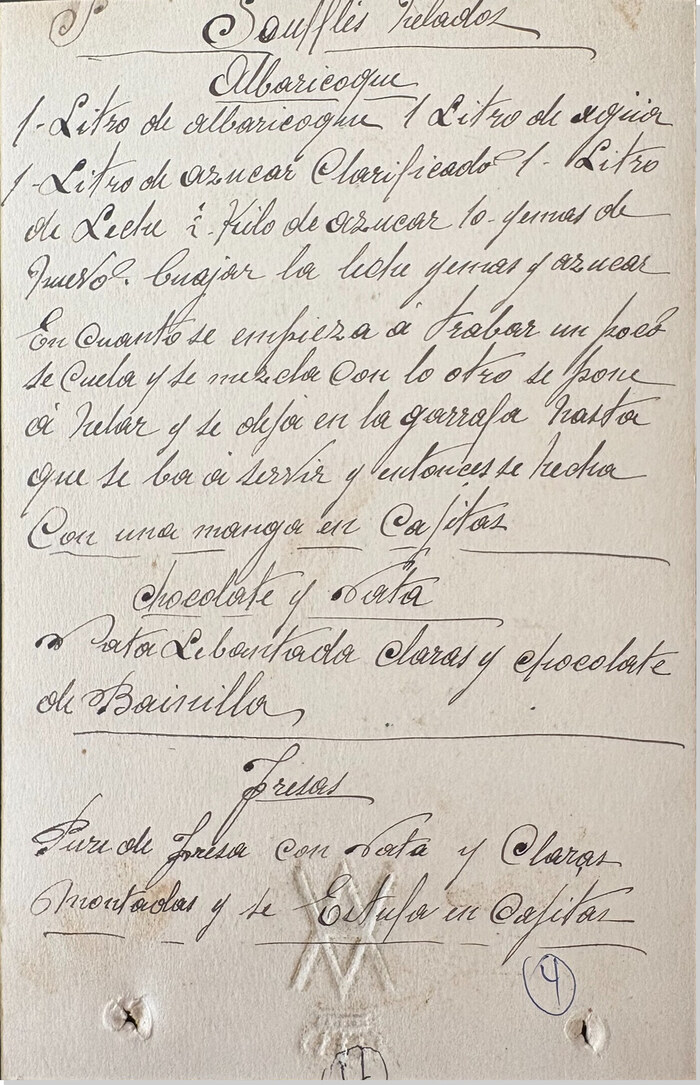 Soufflés helados
Albaricoque
1-Litro de albaricoque 1 Litro de agua
1-Litro de azucar Clarificado 1- Litro
de Leche Kilo de azucar 10-yemas de
huevo. Cuajar la leche yemas y azucar
En cuanto se empieza á trabar un poco
se cuela y se mezcla con lo otro se pone
á helar y se deja en la garrafa hasta
que se ba á servir y entonces se hecha
Con una manga en Cajitas
Chocolate y Nata
Nata Lebantada claras y chocolate
de Bainilla
Fresas
Pure de fresa con Nata y Claras
Montadas y se Estufa en Cajitas
4